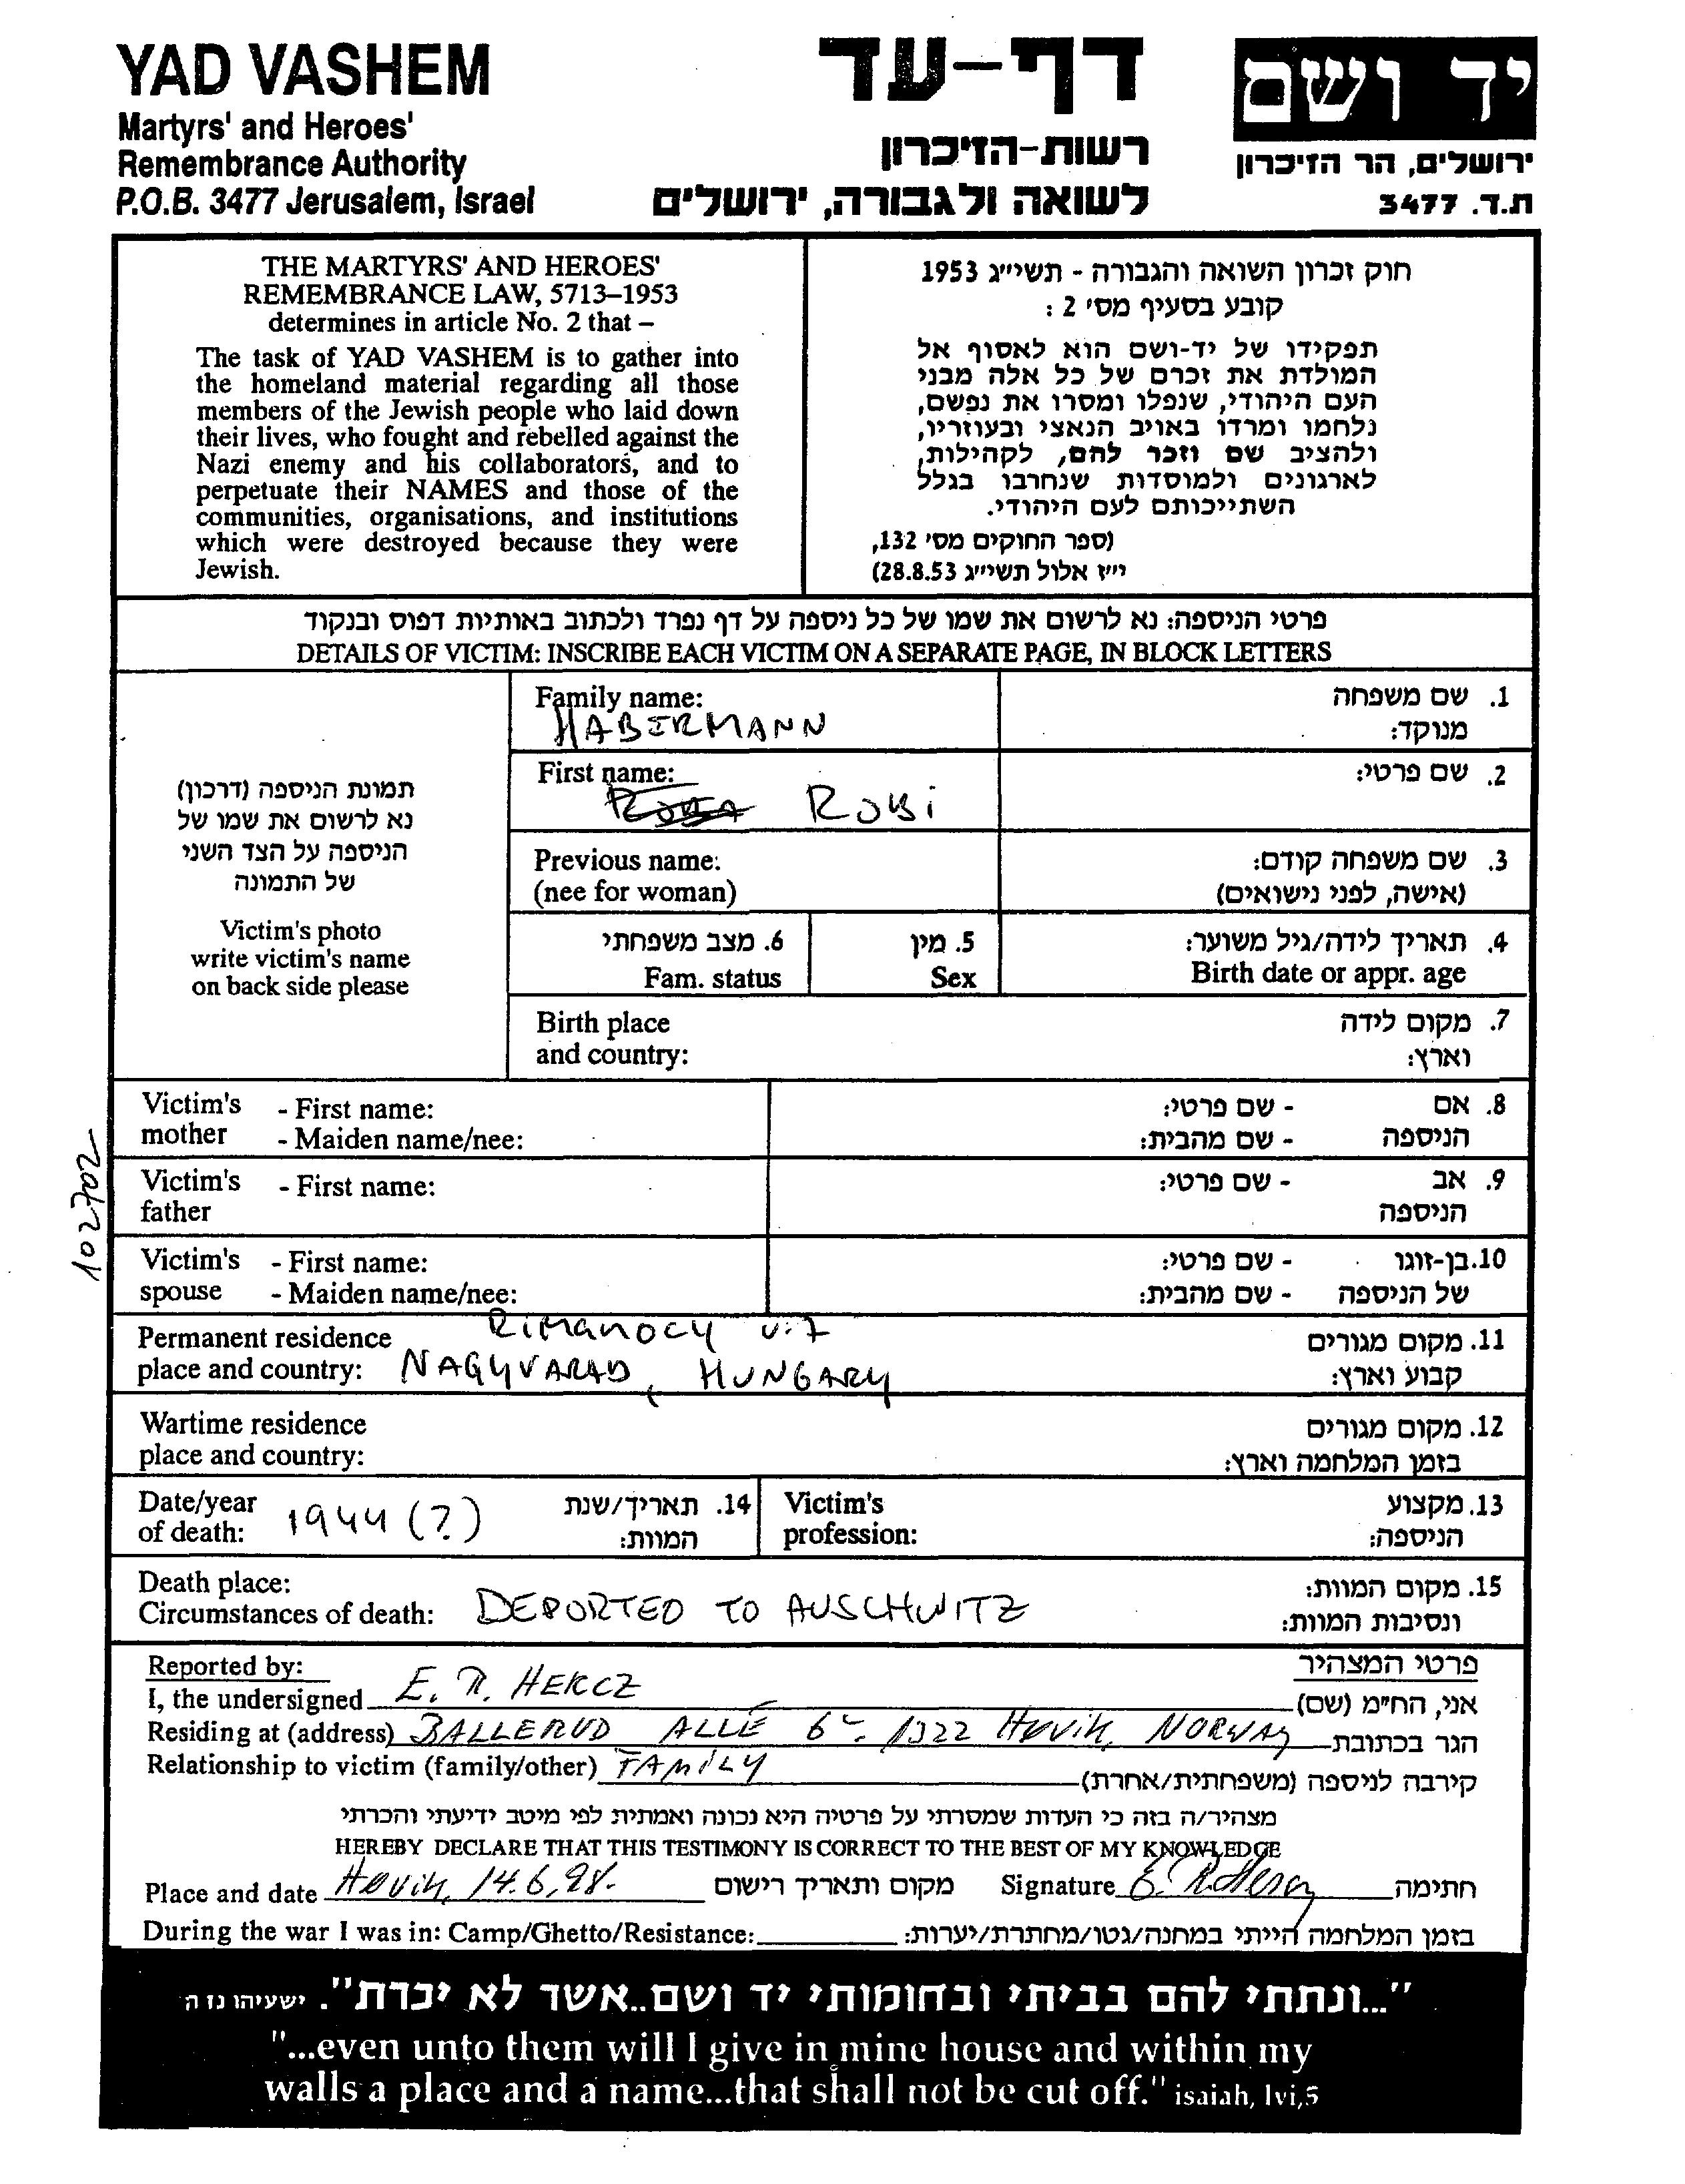 YAD VASHEM
Martyrs' and Heroes'
Remembrance Authority
P.O.B. 3477 Jerusalem, Israel
דף-עד
רשות-הזיכרון
לשואה ולגבורה, ירושלים
יד ושם
ירושלים, הר הזיכרון
ת.ד. 3477
THE MARTYRS' AND HEROES'
REMEMBRANCE LAW, 5713–1953
determines in article No. 2 that –
The task of YAD VASHEM is to gather into
the homeland material regarding all those
members of the Jewish people who laid down
their lives, who fought and rebelled against the
Nazi enemy and his collaborators, and to
perpetuate their NAMES and those of the
communities, organisations, and institutions
which were destroyed because they were
Jewish.
חוק זכרון השואה והגבורה - תשי״ג 1953
קובע בסעיף מס׳ 2 :
תפקידו של יד-ושם הוא לאסוף אל
המולדת את זכרם של כל אלה מבני
העם היהודי, שנפלו ומסרו את נפשם,
נלחמו ומרדו באויב הנאצי ובעוזריו,
ולהציב שם וזכר להם, לקהילות,
לארגונים ולמוסדות שנחרבו בגלל
השתייכותם לעם היהודי.
(ספר החוקים מס׳ 132,
י״ז אלול תשי״ג 28.8.53)
פרטי הניספה: נא לרשום את שמו של כל ניספה על דף נפרד ולכתוב באותיות דפוס ובנקוד
DETAILS OF VICTIM: INSCRIBE EACH VICTIM ON A SEPARATE PAGE, IN BLOCK LETTERS
תמונת הניספה (דרכון)
נא לרשום את שמו של
הניספה על הצד השני
של התמונה
Victim's photo
write victim's name
on back side please
Family name: 1. שם משפחה
HABERMANN מנוקד:
First name: 2. שם פרטי:
Robi
Previous name: 3. שם משפחה קודם:
(nee for woman) (אישה, לפני נישואים)
6. מצב משפחתי 5. מין 4. תאריך לידה/גיל משוער:
Fam. status Sex Birth date or appr. age
Birth place 7. מקום לידה
and country: וארץ:
Victim's - First name: - שם פרטי: 8. אם
mother - Maiden name/nee: - שם מהבית: הניספה
Victim's - First name: - שם פרטי: 9. אב
father הניספה
Victim's - First name: - שם פרטי: 10.בן-זוגו
spouse - Maiden name/nee: - שם מהבית: של הניספה
Permanent residence Rimanocy u.7 11. מקום מגורים
place and country: NAGYVARAD, HUNGARY קבוע וארץ:
Wartime residence 12. מקום מגורים
place and country: בזמן המלחמה וארץ:
Date/year 1944 (?) 14. תאריך/שנת Victim's 13. מקצוע
of death: המוות: profession: הניספה:
Death place: 15. מקום המוות:
Circumstances of death: DEPORTED TO AUSCHWITZ ונסיבות המוות:
Reported by: פרטי המצהיר
I, the undersigned E. R. HERCZ אני, הח״מ (שם)
Residing at (address) BALLERUD ALLÉ 6 1322 HØVIK, NORWAY הגר בכתובת
Relationship to victim (family/other) FAMILY קירבה לניספה (משפחתית/אחרת)
מצהיר/ה בזה כי העדות שמסרתי על פרטיה היא נכונה ואמתית לפי מיטב ידיעתי והכרתי
HEREBY DECLARE THAT THIS TESTIMONY IS CORRECT TO THE BEST OF MY KNOWLEDGE
Place and date Høvik, 14.6.98. מקום ותאריך רישום Signature E. R. Hercz חתימה
During the war I was in: Camp/Ghetto/Resistance: בזמן המלחמה הייתי במחנה/גטו/מחתרת/יערות:
"...ונתתי להם בביתי ובחומותי יד ושם..אשר לא יכרת". ישעיהו נו ה
"...even unto them will I give in mine house and within my
walls a place and a name...that shall not be cut off." isaiah, lvi,5
102702